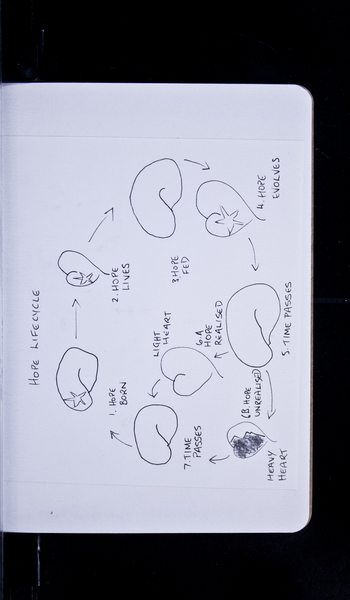 HOPE LIFECYCLE
1. HOPE
BORN
2. HOPE
LIVES
3. HOPE
FED
4. HOPE
EVOLVES
5. TIME PASSES
6.A
HOPE
REALISED
LIGHT
HEART
6B. HOPE
UNREALISED
HEAVY
HEART
7. TIME
PASSES